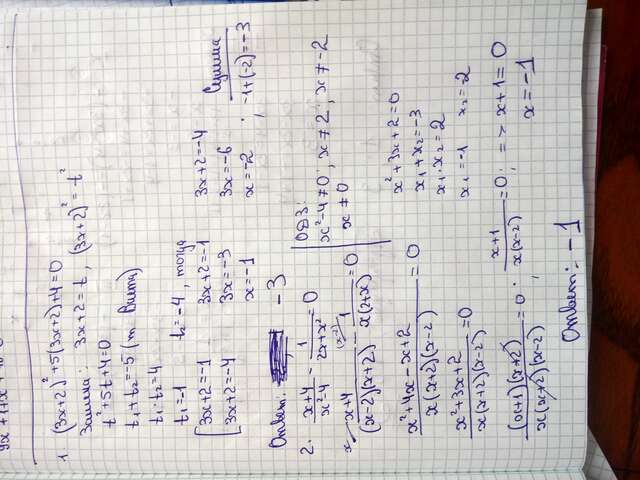 1 (3x+2)² + 5(3x+2) + 4 = 0
Замена: 3x+2 = t, (3x+2)² = t²
t² + 5t + 4 = 0
t₁ + t₂ = -5 (т. Виета)
t₁ · t₂ = 4
t₁ = -1 t₂ = -4, тогда
[3x+2 = -1 3x+2 = -1 3x+2 = -4
3x+2 = -4 3x = -3 3x = -6
x = -1 x = -2
Сумма
; -1+(-2) = -3
Ответ: -3
2. x+4/x²-4 - 1/2x+x² = 0
ОДЗ:
x²-4 ≠ 0; x ≠ 2; x ≠ -2
x ≠ 0
x x+4/(x-2)(x+2) - (x-2) 1/x(2+x) = 0
x²+4x-x+2/x(x+2)(x-2) = 0
x²+3x+2/x(x+2)(x-2) = 0
x²+3x+2 = 0
x₁+x₂ = -3
x₁·x₂ = 2
x₁ = -1 x₂ = -2
(x+1)(x+2)/x(x+2)(x-2) = 0; x+1/x(x-2) = 0; => x+1 = 0
x = -1
Ответ: -1